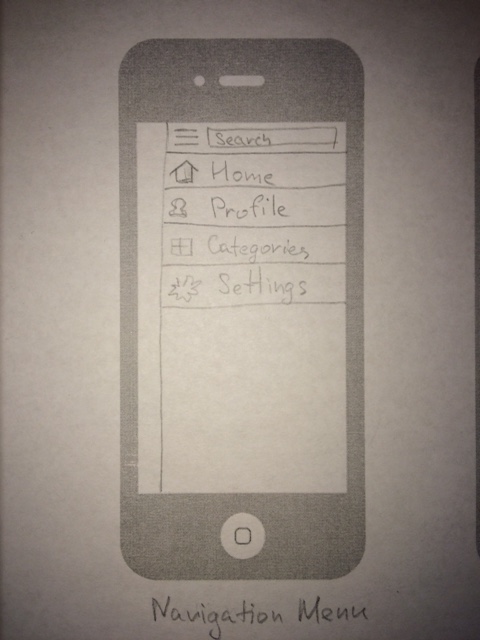 Search
Home
Profile
Categories
Settings
Navigation Menu